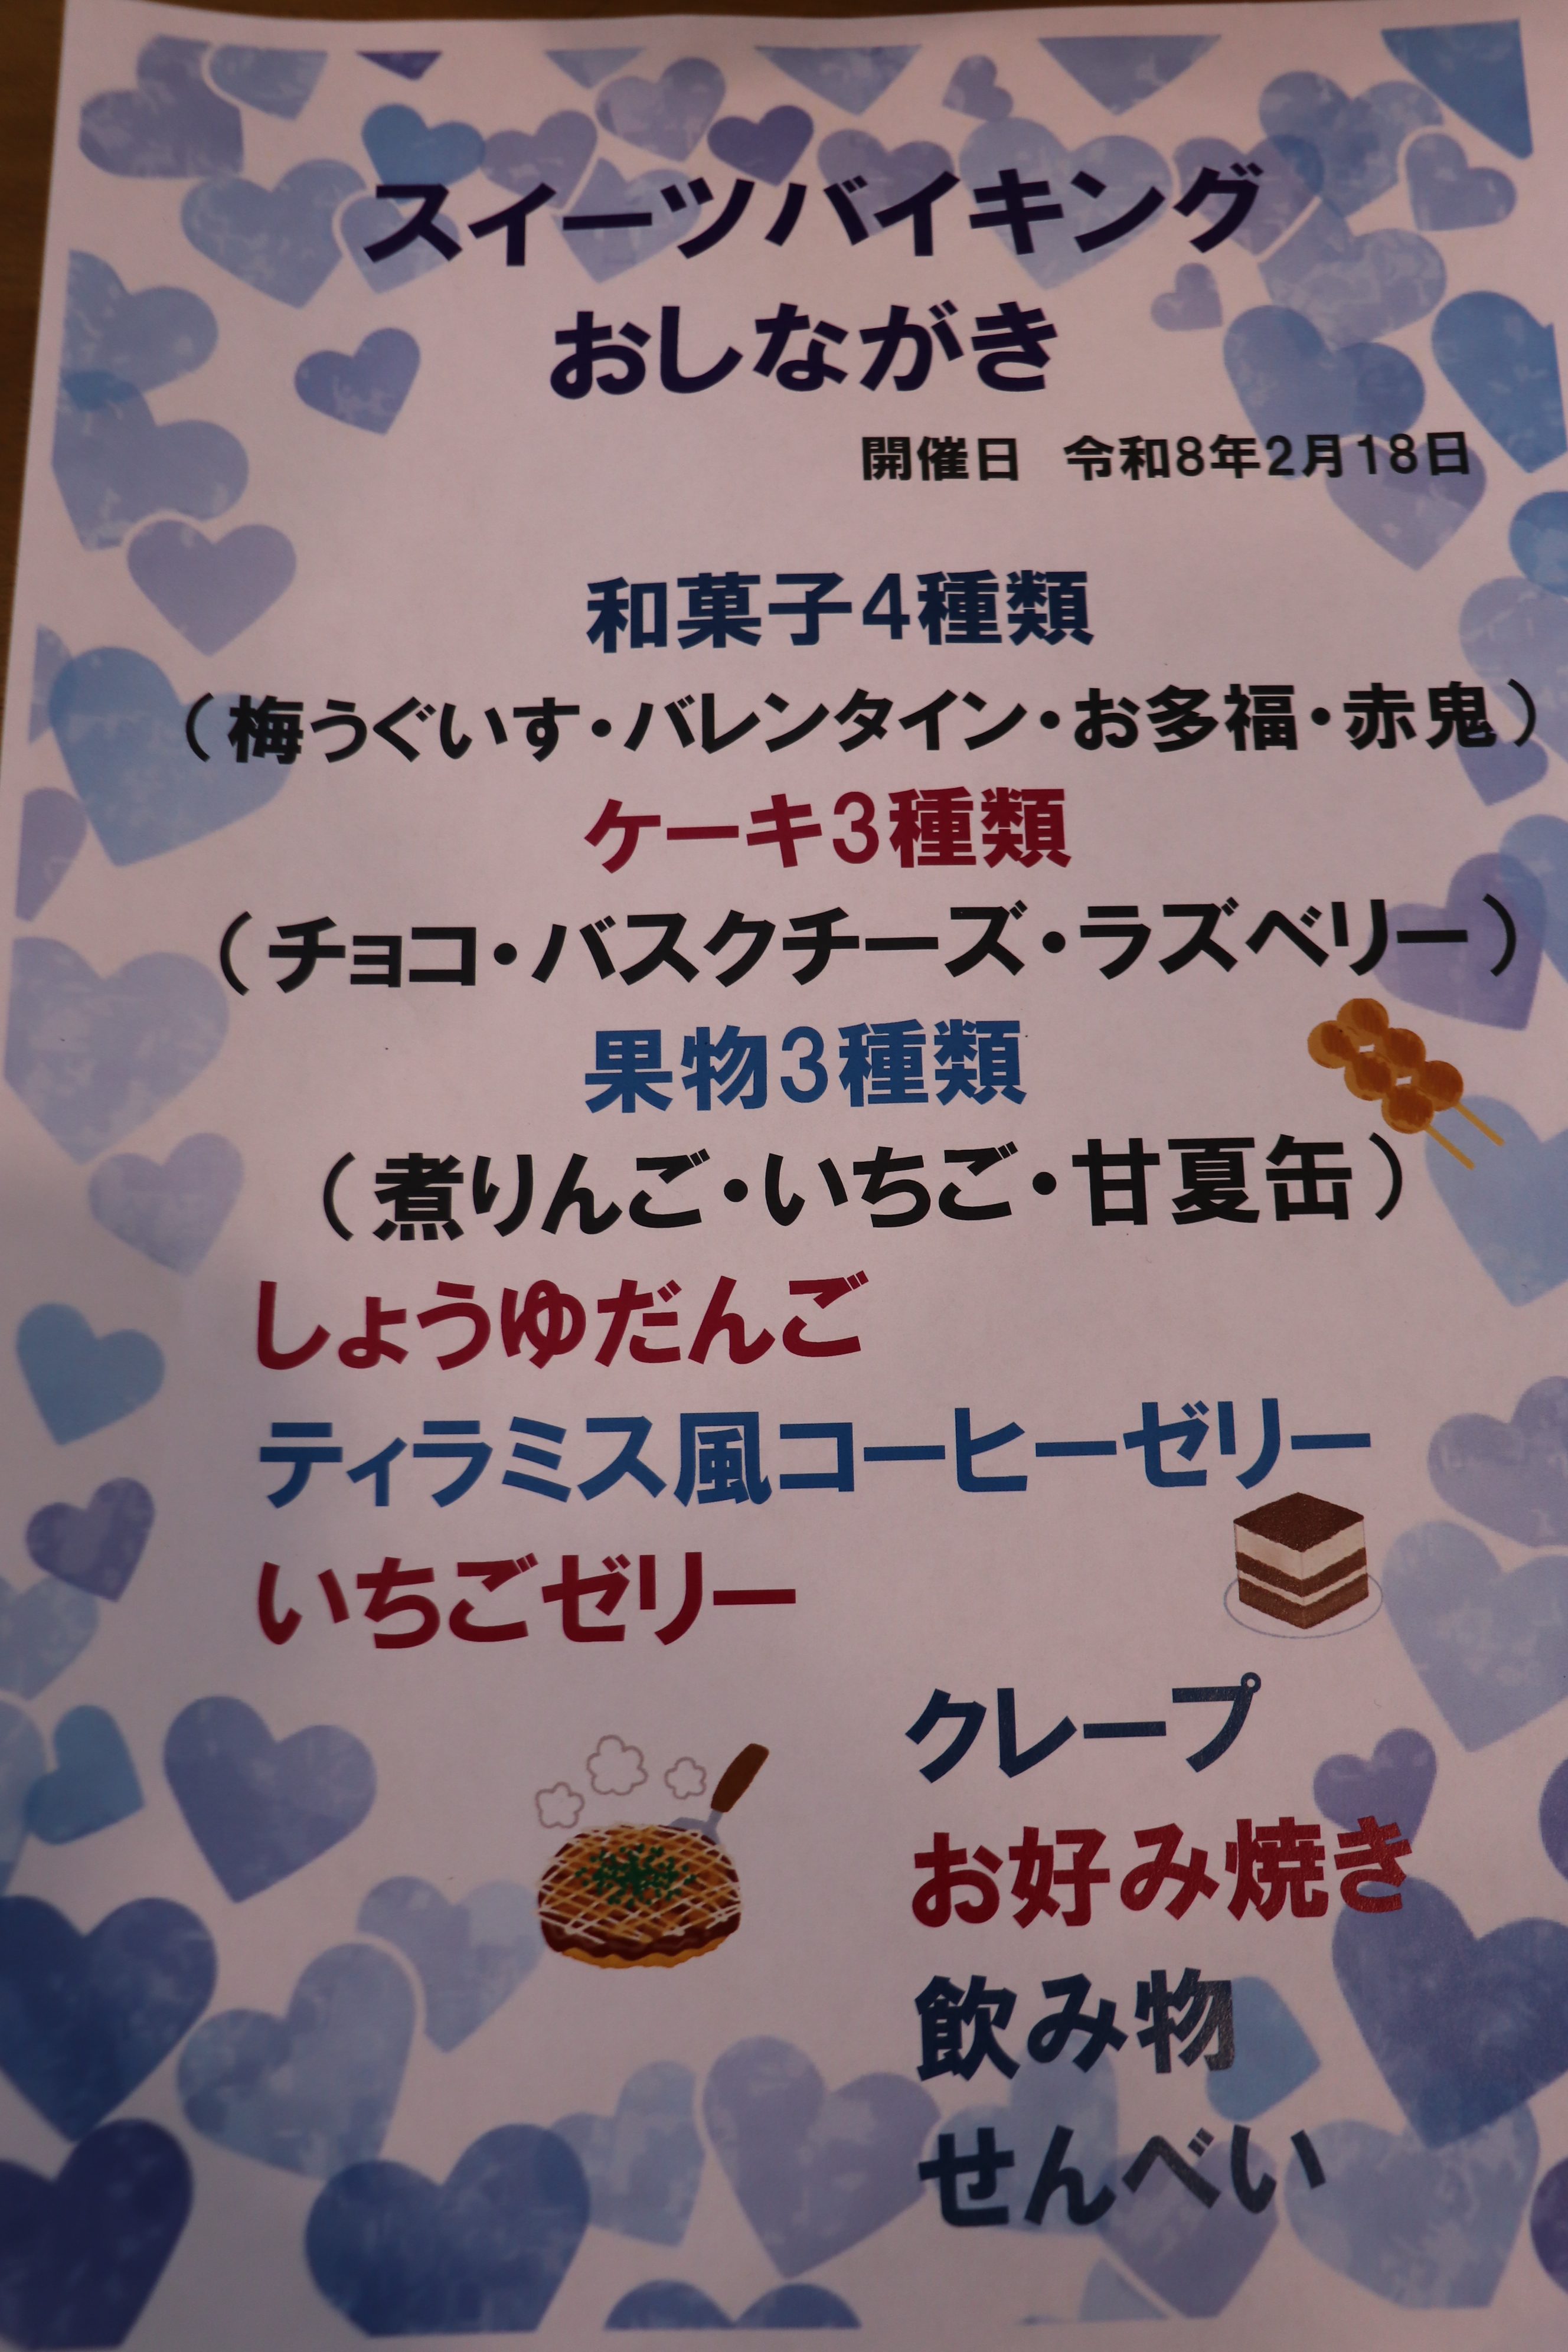 スイーツバイキング
おしながき
開催日　令和8年2月18日
和菓子4種類
（梅うぐいす・バレンタイン・お多福・赤鬼）
ケーキ3種類
（チョコ・バスクチーズ・ラズベリー）
果物3種類
（煮りんご・いちご・甘夏缶）
しょうゆだんご
ティラミス風コーヒーゼリー
いちごゼリー
クレープ
お好み焼き
飲み物
せんべい